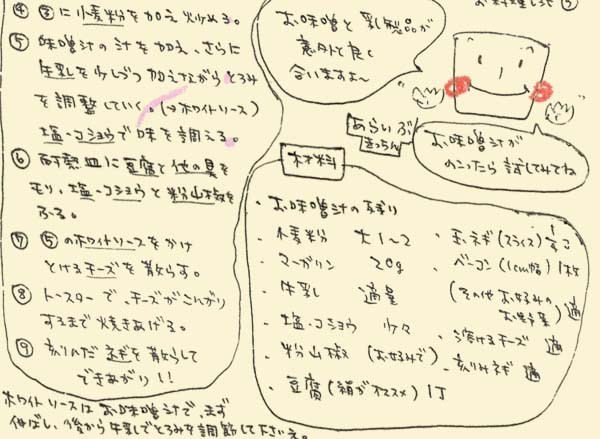 ④ ③に小麦粉を加え炒める。
⑤ 味噌汁の汁を加え、さらに
牛乳を少しづつ加えながらとろみ
を調整していく。(→ホワイトソース)
塩・コショウで味を調える。
⑥ 耐熱皿に豆腐と他の具を
モリ、塩・コショウと粉山椒を
ふる。
⑦ ⑤のホワイトソースをかけ
とけるチーズを散らす。
⑧ トースターで、チーズがこんがり
するまで焼きあげる。
⑨ 刻んだネギを散らして
できあがり!!
ホワイトソースはお味噌汁で、まず
伸ばし、後から牛乳でとろみを調節して下さい。
お味噌と乳製品が
意外と良く
合いますよ〜
あらいぶ
きっちん
お味噌汁が
のこったら試してみてね
材料
・お味噌汁の残り
・小麦粉 大1〜2
・マーガリン 20g
・牛乳 適量
・塩・コショウ 少々
・粉山椒 (お好みで)
・豆腐(絹がオススメ) 1丁
・玉ネギ(スライス)
・ベーコン(1cm幅) 1枚
(その他お好みの
お野菜) 適
・溶けるチーズ 適
・刻みネギ 適